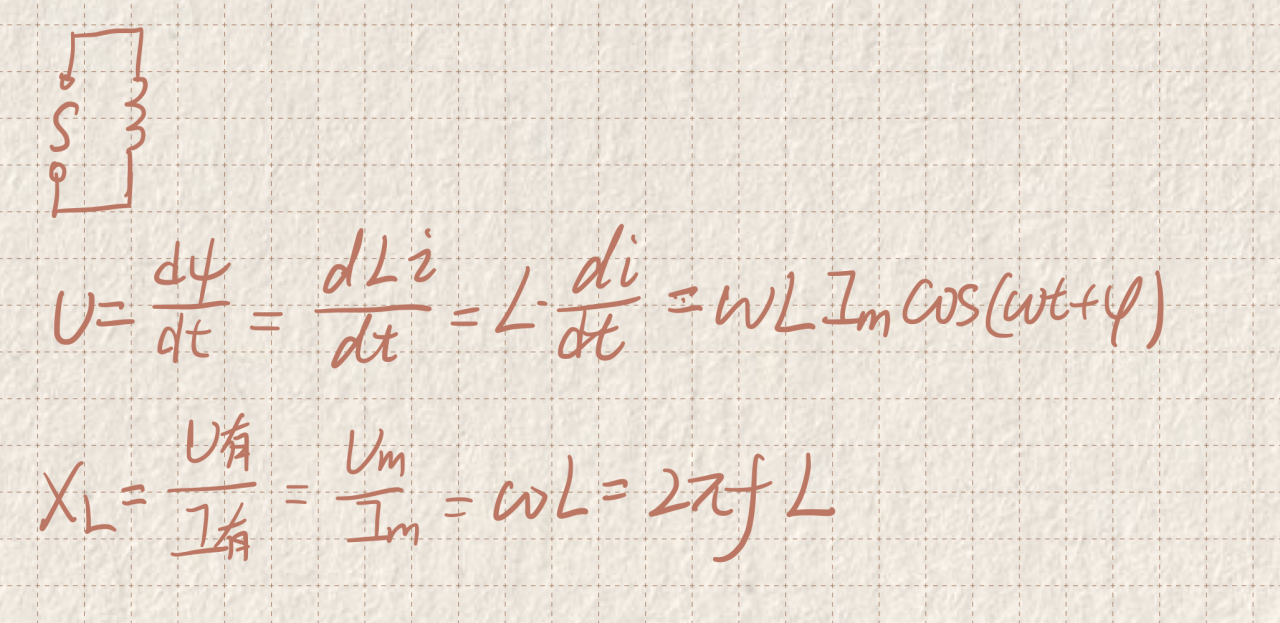 U = dψ/dt = dLi/dt = L·di/dt = ωLIₘcos(ωt+φ)
X_L = U有/I有 = Uₘ/Iₘ = ωL = 2πfL